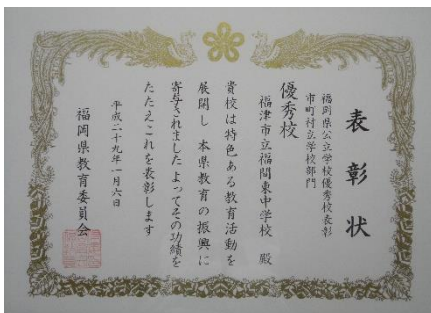 表彰状
福岡県公立学校優秀校表彰
市町村立学校部門
優秀校
福津市立福間東中学校 殿
貴校は特色ある教育活動を
展開し 本県教育の振興に
寄与されました よってその功績を
たたえこれを表彰します
平成二十九年一月六日
福岡県教育委員会